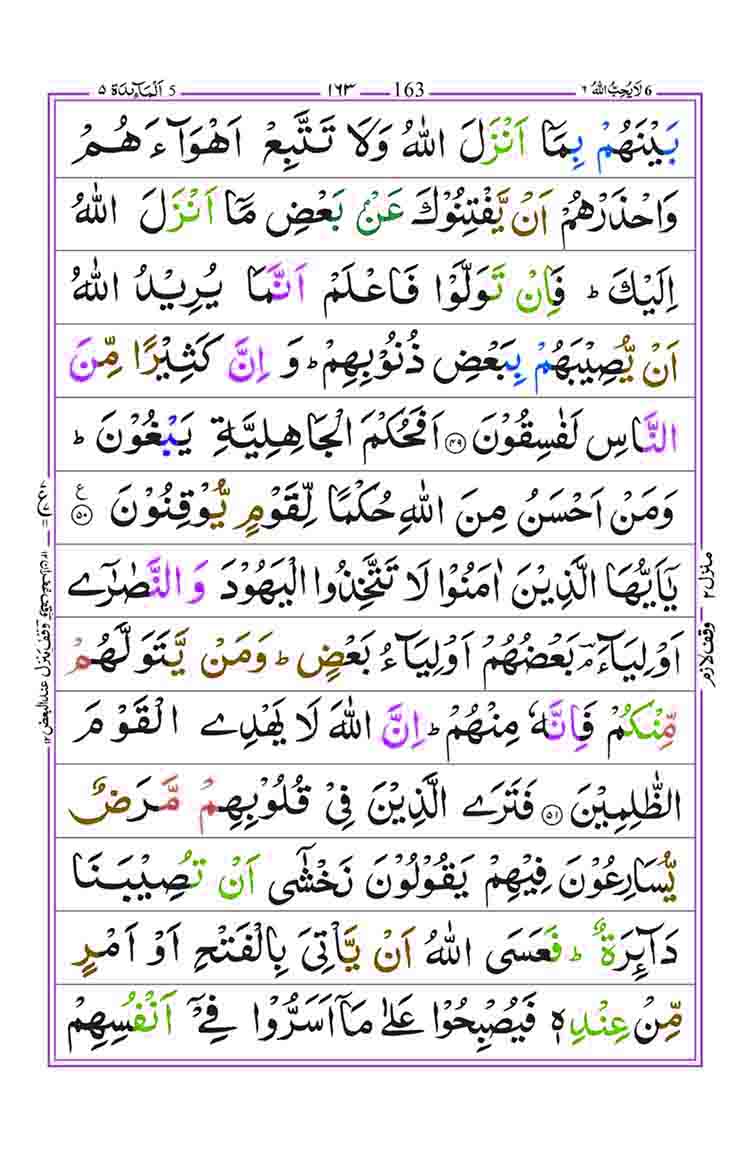 6 لَا يُحِبُّ اللهُ ٦ 163 ١٦٣ 5 اَلْمَآئِدَة ٥
بَيْنَهُمْ بِمَآ اَنْزَلَ اللهُ وَلَا تَتَّبِعْ اَهْوَآءَهُمْ
وَاحْذَرْهُمْ اَنْ يَّفْتِنُوْكَ عَنْۢ بَعْضِ مَآ اَنْزَلَ اللهُ
اِلَيْكَ ؕ فَاِنْ تَوَلَّوْا فَاعْلَمْ اَنَّمَا يُرِيْدُ اللهُ
اَنْ يُّصِيْبَهُمْ بِبَعْضِ ذُنُوْبِهِمْ ؕ وَ اِنَّ كَثِيْرًا مِّنَ
النَّاسِ لَفٰسِقُوْنَ ۝۴۹ اَفَحُكْمَ الْجَاهِلِيَّةِ يَبْغُوْنَ ؕ
وَمَنْ اَحْسَنُ مِنَ اللهِ حُكْمًا لِّقَوْمٍ يُّوْقِنُوْنَ ۝۵۰ ع
يٰٓاَيُّهَا الَّذِيْنَ اٰمَنُوْا لَا تَتَّخِذُوا الْيَهُوْدَ وَ النَّصٰرٰٓى
اَوْلِيَآءَ ۘ بَعْضُهُمْ اَوْلِيَآءُ بَعْضٍ ؕ وَمَنْ يَّتَوَلَّهُمْ
مِّنْكُمْ فَاِنَّهٗ مِنْهُمْ ؕ اِنَّ اللهَ لَا يَهْدِى الْقَوْمَ
الظّٰلِمِيْنَ ۝۵۱ فَتَرَى الَّذِيْنَ فِىْ قُلُوْبِهِمْ مَّرَضٌ
يُّسَارِعُوْنَ فِيْهِمْ يَقُوْلُوْنَ نَخْشٰٓى اَنْ تُصِيْبَنَا
دَآئِرَةٌ ؕ فَعَسَى اللهُ اَنْ يَّاْتِىَ بِالْفَتْحِ اَوْ اَمْرٍ
مِّنْ عِنْدِهٖ فَيُصْبِحُوْا عَلٰى مَآ اَسَرُّوْا فِىْٓ اَنْفُسِهِمْ
منزل ٢
وقف لازم